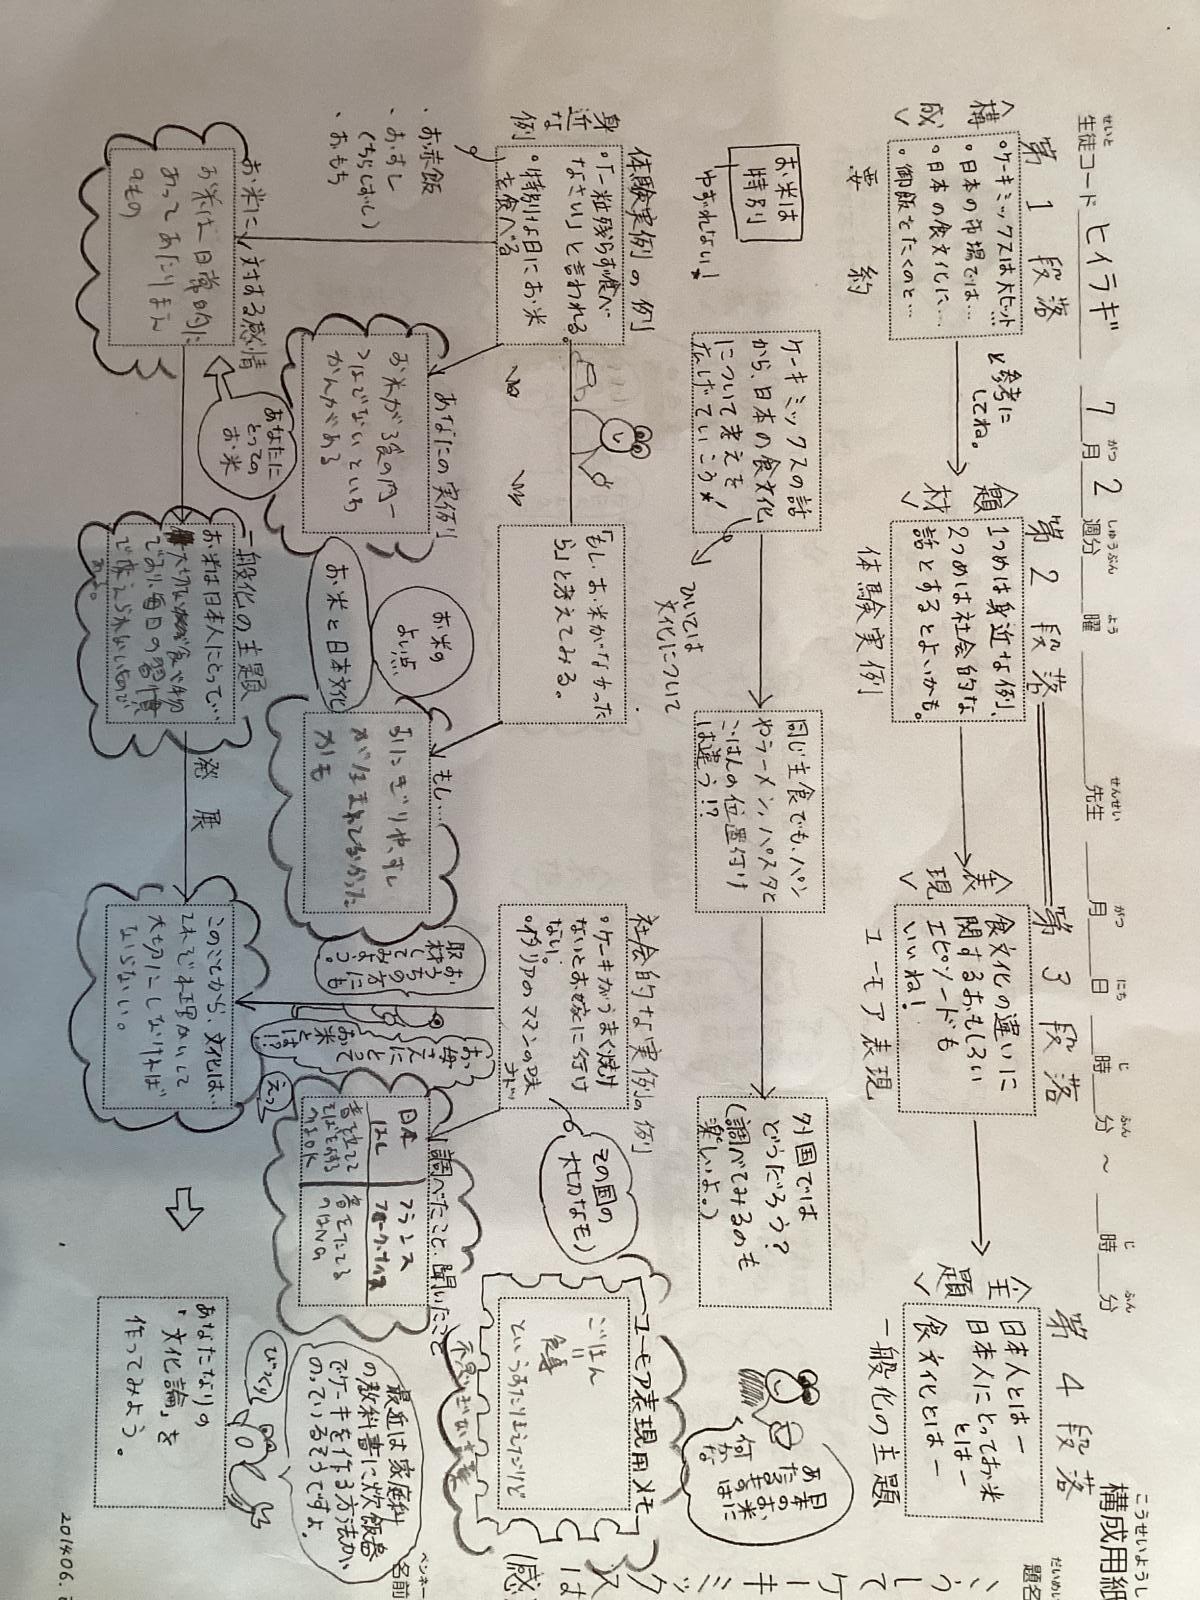 こうせいようし
構成用紙
だいめい
題名
こうして
ケーキミックスは
(感
ペンネーム
名前
せいと
生徒コード ヒイラギ 7月2週分 曜 先生 月 日 時 分 ～ 時 分
がつ しゅうぶん よう せんせい がつ にち じ ふん じ ふん
第1段落
第2段落
第3段落
第4段落
＜構成＞
要約
。ケーキミックスは大ヒット…
。日本の市場では…
。日本の食文化に…
。御飯をたくのと…
と参考に
してね。
＜題材＞
体験実例
1つめは身近な例、
2つめは社会的な
話とするとよいかも。
＜表現＞
ユーモア表現
食文化の違いに
関するおもしろい
エピソードも
いいね!
＜主題＞
一般化の主題
日本人とはー
日本人にとってお米
とはー
食文化とはー
お米は
特別
ゆずれない!
ケーキミックスの話
から、日本の食文化
について考えを
広げていこう
ひいては
文化について
同じ主食でも、パン
やラーメン、パスタと
ごはんの位置付け
は違う!?
外国では
どうだろう?
(調べてみるのも
楽しいよ。)
身近な例
体験実例の例
。「一粒残らず食べ
なさい」と言われる。
。特別な日にお米
を食べる
・お赤飯
・おすし
(ちらしずし)
・おもち
「もし、お米がなかった
ら」と考えてみる。
社会的な実例の例
。ケーキがうまく焼け
ないとお嫁に行け
ない。
。イタリアのマンマの味
その国の
大切なモノ
ユーモア表現用メモ
ごはん
=
食事
というあたりまえだけど
不思ぎな言葉
日本の
あたたかな
お米は
何に
あなたの実例
お米が3食の内一
つはでないといら
かんがある
お米の
よい点
お米と日本文化
もし…
おにぎりやすし
が生まれてなかった
かも
おうちの方にも
取材してみよう。
お母さんにとって
お米とは!?
えっ
調べたこと、聞いたこと
日本
はし
音を立てて
そばを食べる
のはOK
フランス
フォーク・ナイフ
音をたてる
のはNG
最近は家庭科
の教科書に炊飯器
でケーキを作る方法が
のっているそうですよ。
びっくり
お米に対する感情
お米は日常的に
あってあたりまえ
のもの
あなたに
とっての
お米
一般化の主題
お米は日本人にとって…
大切な食べ物
であり毎日の習慣
で変えられないもので
ある。
発展
このことから、文化は…
それぞれ理解して
大切にしなければ
ならない。
あなたなりの
「文化論」を
作ってみよう。
201406.